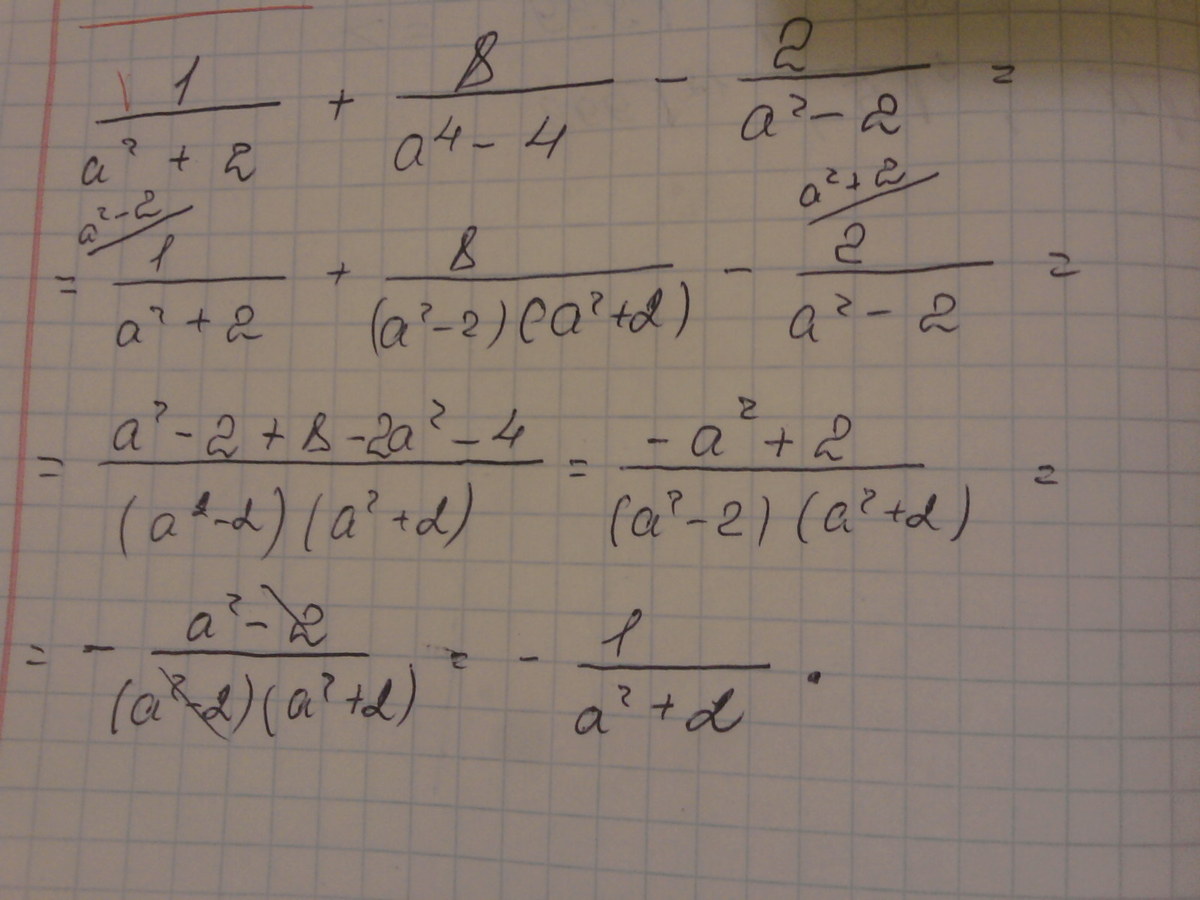 1/(a² + 2) + 8/(a⁴ - 4) - 2/(a² - 2) =
= (a² - 2)/ 1/(a² + 2) + 8/((a² - 2)(a² + 2)) - (a² + 2)/ 2/(a² - 2) =
= (a² - 2 + 8 - 2a² - 4)/((a² - 2)(a² + 2)) = (-a² + 2)/((a² - 2)(a² + 2)) =
= - (a² - 2)/((a² - 2)(a² + 2)) = - 1/(a² + 2) .